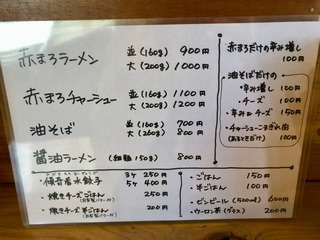 赤まろラーメン 並(160g) 900円
大(200g) 1000円
赤まろチャーシュー 並(160g) 1100円
大(200g) 1200円
油そば 並(160g) 700円
大(260g) 800円
醤油ラーメン (細麺150g) 800円
赤まろだけの辛み増し
100円
油そばだけの
・辛み増し
100円
・チーズ 100円
・辛み&チーズ 150円
・チャーシューこまぎれ肉
(あるときだけ) 100円
・傾奇者水餃子 3ヶ 250円
5ヶ 400円
・焼きチーズごはん
250円
・焼きチーズ半ごはん
200円
・ごはん 150円
・半ごはん 100円
・ビンビール(500ml) 600円
・ウーロン茶(グラス) 200円